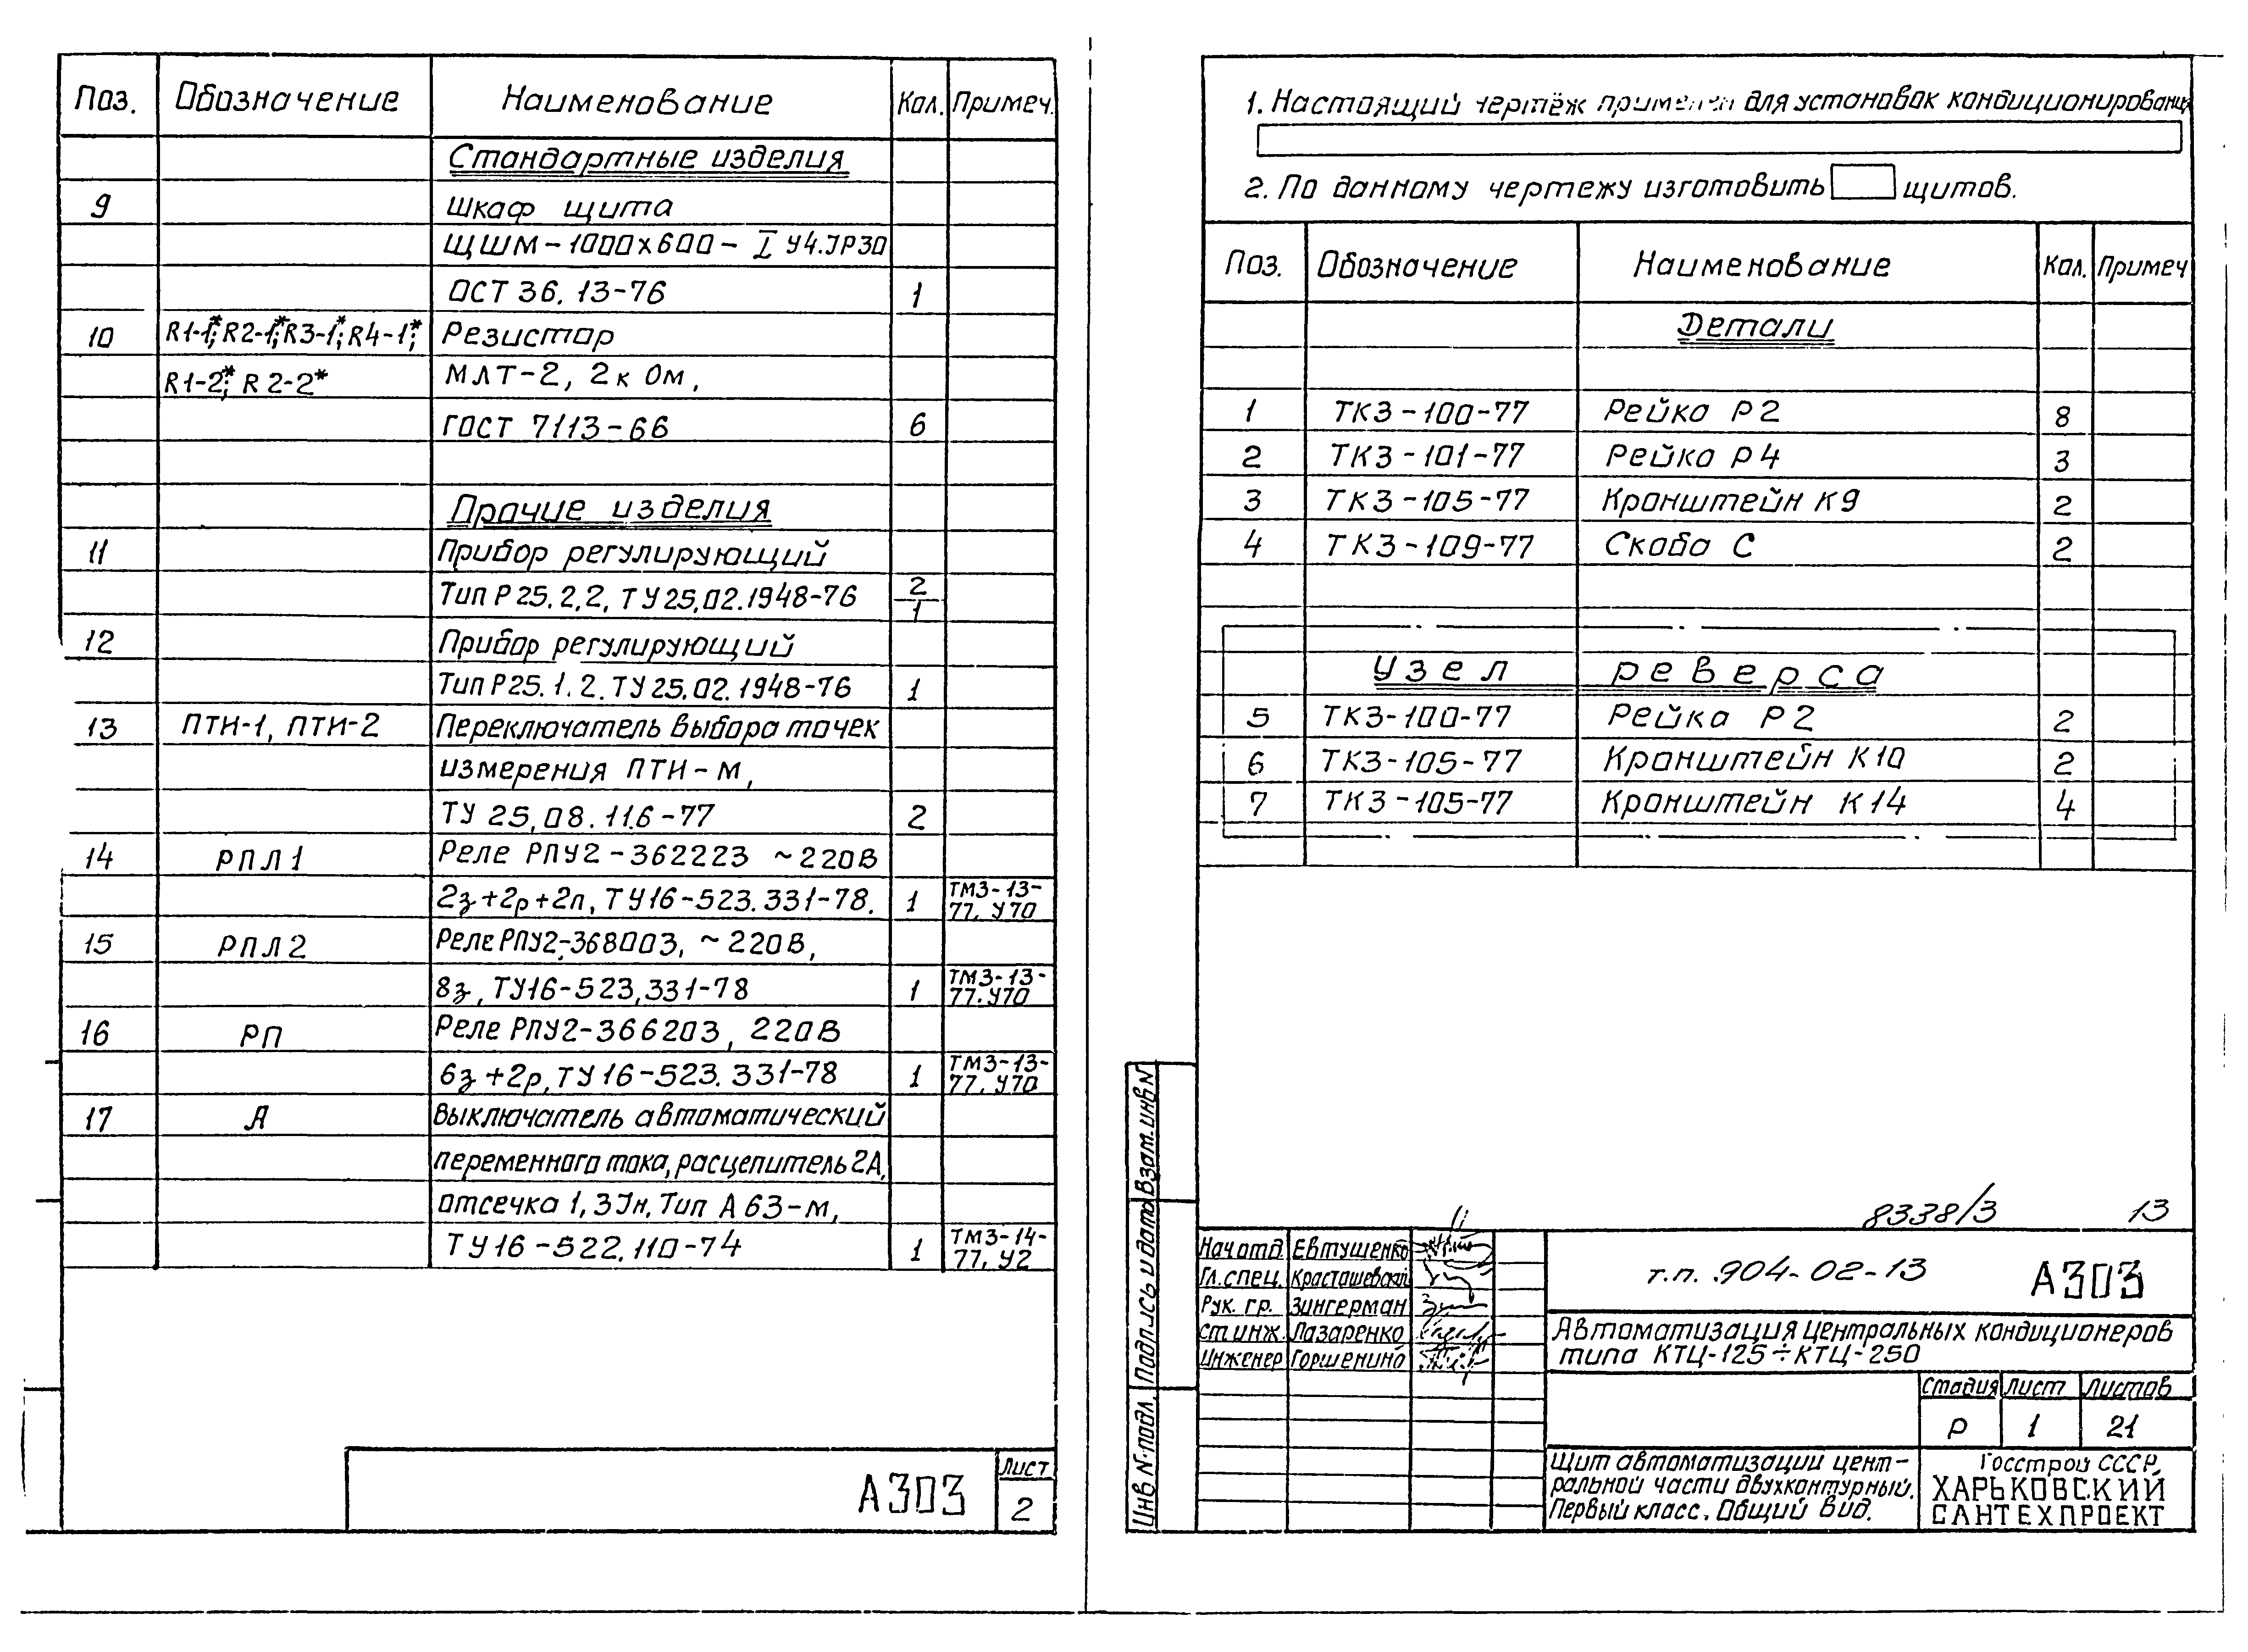 Поз. Обозначение Наименование Кол. Примеч.
Стандартные изделия
9 Шкаф щита
ЩШМ-1000х600-I У4.IP30
ОСТ 36.13-76 1
10 R1-1*; R2-1*; R3-1*; R4-1*; Резистор
R1-2*; R2-2* МЛТ-2, 2к Ом,
ГОСТ 7113-66 6
Прочие изделия
11 Прибор регулирующий
Тип Р25.2.2, ТУ25.02.1948-76 2/1
12 Прибор регулирующий
Тип Р25.1.2. ТУ25.02.1948-76 1
13 ПТИ-1, ПТИ-2 Переключатель выбора точек
измерения ПТИ-М,
ТУ 25.08.116-77 2
14 РПЛ1 Реле РПУ2-362223 ~220В
2з+2р+2п, ТУ16-523.331-78. 1 ТМ3-13-77. У70
15 РПЛ2 Реле РПУ2-368003, ~220В,
8з, ТУ16-523.331-78 1 ТМ3-13-77. У70
16 РП Реле РПУ2-366203, 220В
6з+2р, ТУ16-523.331-78 1 ТМ3-13-77. У70
17 А Выключатель автоматический
переменного тока, расцепитель 2А,
отсечка 1,3Iн. Тип А63-М,
ТУ16-522.110-74 1 ТМ3-14-77. У2
А303
Лист
2
1. Настоящий чертёж применен для установок кондиционирования
2. По данному чертежу изготовить щитов.
Поз. Обозначение Наименование Кол. Примеч
Детали
1 ТК3-100-77 Рейка Р2 8
2 ТК3-101-77 Рейка Р4 3
3 ТК3-105-77 Кронштейн К9 2
4 ТК3-109-77 Скоба С 2
Узел реверса
5 ТК3-100-77 Рейка Р2 2
6 ТК3-105-77 Кронштейн К10 2
7 ТК3-105-77 Кронштейн К14 4
8338/3 13
Взам.инв.N
Подпись и дата
Инв N подл.
Нач отд Евтушенко
Гл. спец. Красташевский
Рук. гр. Зингерман
Ст инж. Лазаренко
Инженер Горшенина
т.п. 904-02-13 А303
Автоматизация центральных кондиционеров
типа КТЦ-125÷КТЦ-250
Стадия Лист Листов
Р 1 21
Щит автоматизации цент-
ральной части двухконтурный.
Первый класс. Общий вид.
Госстрой СССР,
ХАРЬКОВСКИЙ
САНТЕХПРОЕКТ